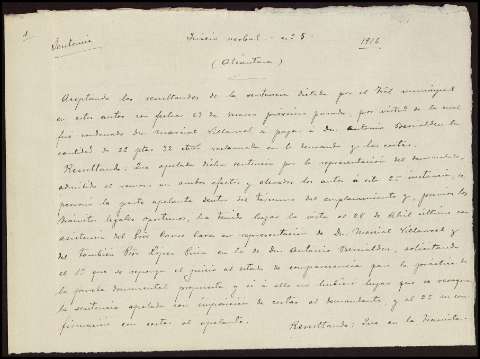 Sentencia
Juicio verbal - nº 5 - 1916
(Alcántara)
Aceptando los resultandos de la sentencia dictada por el Tral municipal
en estos autos con fecha 23 de marzo próximo pasado, por virtud de la cual
fué condenado Dn Marcial Villarroel a pagar á Dn Antonio Bernáldez la
cantidad de 22 ptas 32 cts reclamada en la demanda y las costas.
Resultando: Que apelada dicha sentencia por la representación del demandado,
admitido el recurso en ambos efectos y elevados los autos á esta 2ª instancia, se
personó la parte apelante dentro del término del emplazamiento y, previos los
trámites legales oportunos, ha tenido lugar la vista el 28 de Abril último con
asistencia del Pdor en representación de Dn Marcial Villarroel y
del también Pdor López en la de Dn Antonio Bernáldez, solicitando
el 1º que se reponga el juicio al estado de comparecencia para la práctica de
la prueba documental propuesta y si á ello no hubiere lugar que se revoque
la sentencia apelada con imposición de costas al demandante, y el 2º su con-
firmación con costas al apelante.
Resultando: Que en la